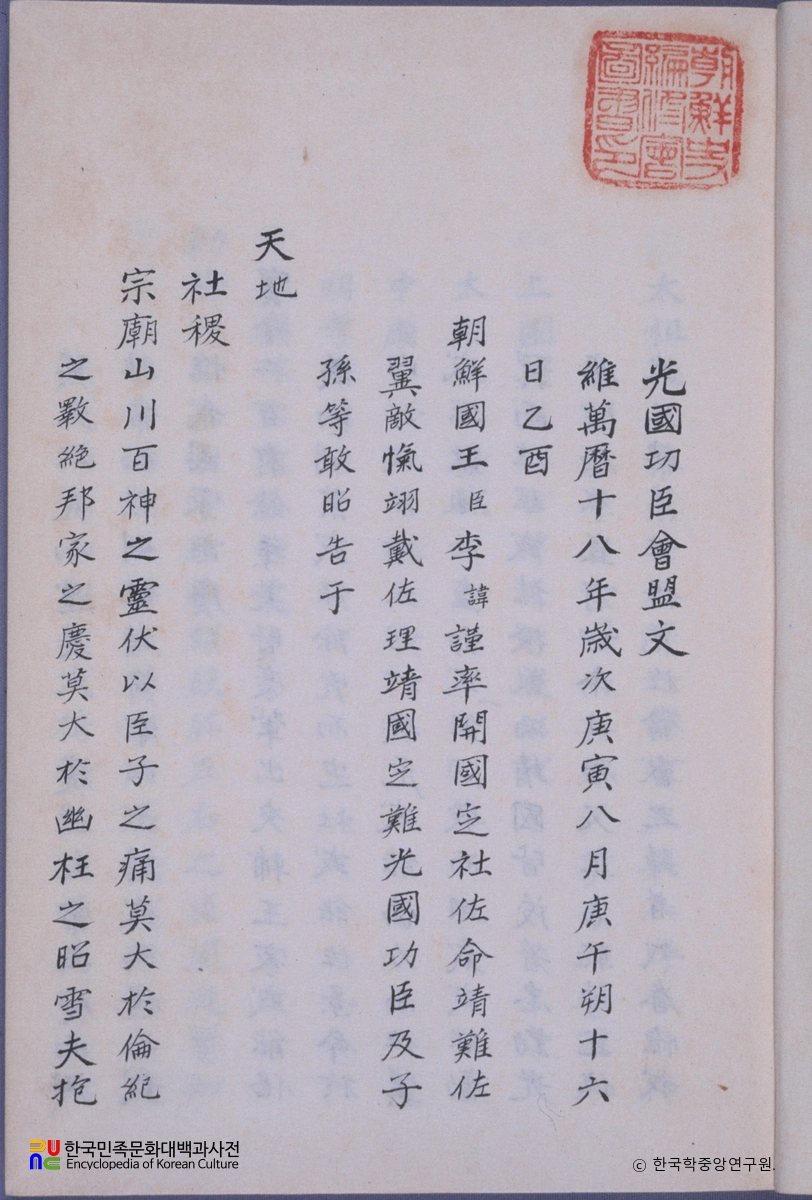 朝鮮史
編修會
圖書印
光國功臣會盟文
維萬曆十八年歲次庚寅八月庚午朔十六
日乙酉
朝鮮國王臣李諱謹率開國㝎社佐命靖難佐
翼敵愾翊戴佐理靖國㝎難光國功臣及子
孫等敢昭告于
天地
社稷
宗廟山川百神之靈伏以臣子之痛莫大於倫紀
之斁絶邦家之慶莫大於幽枉之昭雪夫抱
한국민족문화대백과사전
Encyclopedia of Korean Culture
ⓒ 한국학중앙연구원.